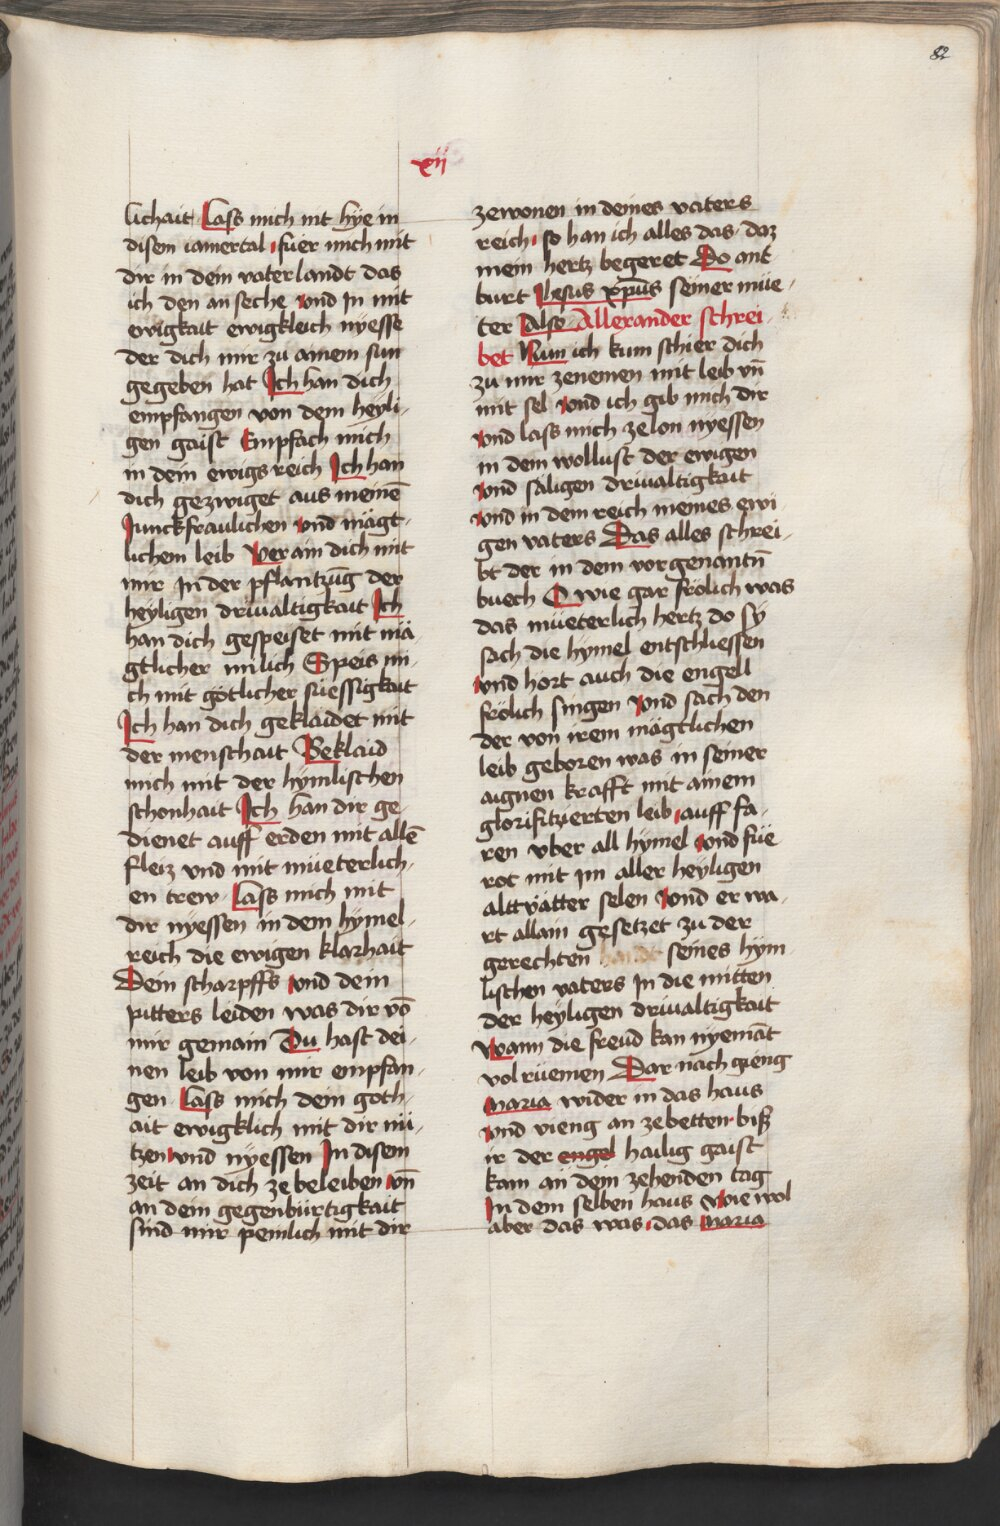 82
xij
lichait Lass mich nit hye in
disem iamertal fuer mich mit
dir in dein vaterlandt das
ich den an seche vnd In mit
ewigkait ewigkleich nyesse
der dich mir zu ainem sun
gegeben hat Ich han dich
empfangen von dem heyli-
gen gaist Empfach mich
in dem ewigs reich Ich han
dich gezwiget aus meinē
Junckfraulichen vnd mägt-
lichem leib Verain dich mit
mir In der pflantzūg der
heyligen driualtigkait Ich
han dich gespeiset mit mä-
gtlicher milich Speis mi-
ch mit götlicher suessigkait
Ich han dich geklaidet mit
der menschait Beklaid
mich mit der hymlischen
schonhait Ich han dir ge-
dienet auff erden mit allē
fleiz vnd mit müeterlich-
en trew Lass mich mit
dir nyessen in dem hymel-
reich die ewigen klarhait
Dein scharpffs vnd dein
pitters leiden was dir vō
mir gemain Du hast dei-
nen leib von mir empfan-
gen Lass mich dein goth-
ait ewigklich mit dir nü-
tzen vnd nyessen In disem
zeit an dich ze beleiben vn̄
an dein gegenbürtigkait
sind mir peinlich mit dir
zewonen in deines vaters
reich so han ich alles das daz
mein hertz begeret Do ant
burt Jhesus xp̄us seiner müe-
ter Also Allexander schrei-
bet Nun ich kum schier dich
zu mir zenemen mit leib vn̄
mit sel vnd ich gib mich dir
vnd lass mich ze lon nyessen
in dem wollust der ewigen
vnd säligen driualtigkait
vnd in dem reich meines ewi-
gen vaters Das alles schrei-
bt der in dem vorgenantn̄
buech O wie gar frölich was
das müeterlich hertz do sy
sach die hymel entschliessen
vnd hort auch die engell
frölich singen vnd sach den
der von irem mägtlichen
leib geboren was in seiner
aignen krafft mit ainem
glorifitzierten leib auff fa-
ren vber all hymel vnd füe
rot mit im aller heyligen
altvätter selen vnd er wa-
rt allain gesetzet zu der
gerechten seines hym
lischen vaters In die mitten
der heyligen driualtigkait
Wann die freud kan nyemāt
vol rüemen Dar nach gieng
maria wider in das haus
vnd vieng an zebetten biß
ir der engel hailig gaist
kam an dem zehenden tag
In dem selben haus wie wol
aber das was das maria